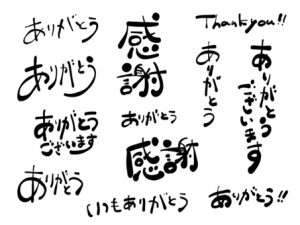 ありがとう
ありがとう
ありがとう
ございます
ありがとう
感謝
ありがとう
感謝
いつもありがとう
Thank you!!
ありがとう
ありがとう
ございます
ありがとう!!